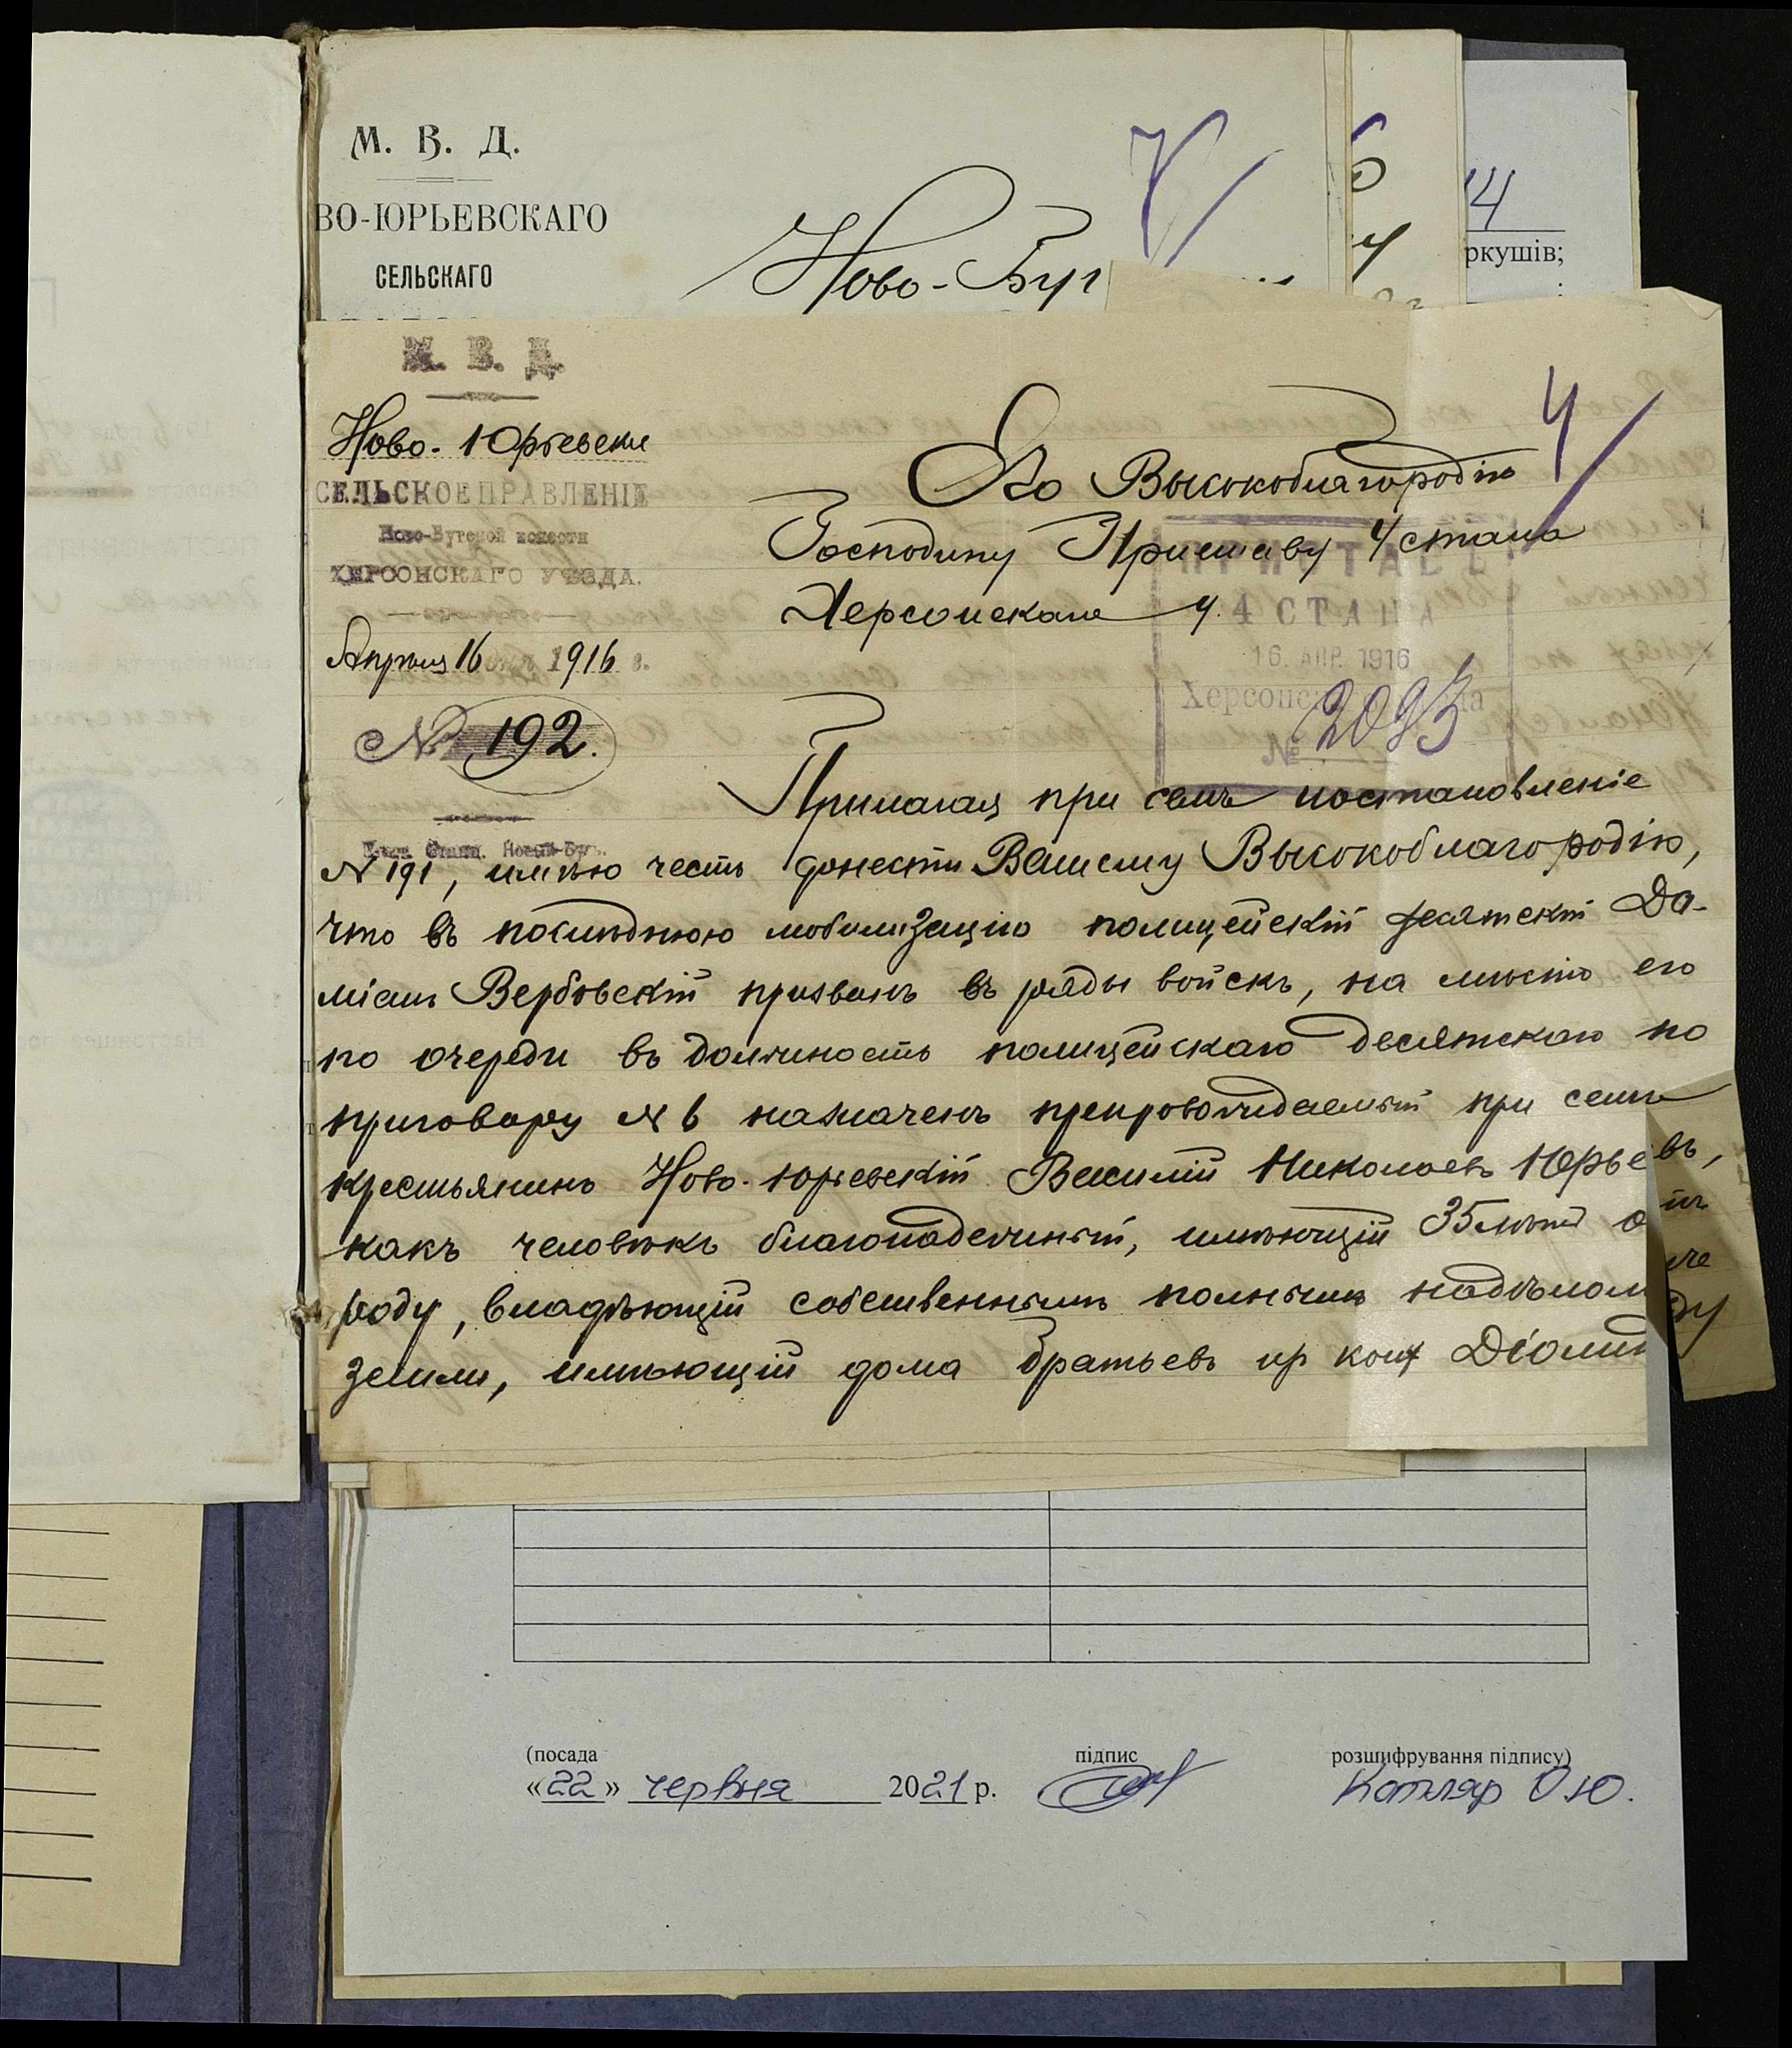 М. В. Д.
ВО-ЮРЬЕВСКАГО
СЕЛЬСКАГО
Ново-Буг
4
ркушів;
М. В. Д.
Ново-Юрьевское
СЕЛЬСКОЕ ПРАВЛЕНІЕ
Ново-Бугской волости
ХЕРСОНСКАГО УѢЗДА.
Апрѣля 16 дня 1916 г.
№ 192.
4
Его Высокоблагородію
Господину Приставу 4 стана
Херсонскаго у.
ПРИСТАВЪ
4 СТАНА
16 АПР. 1916
Херсонск
№ 2093
Прилагая при семъ постановленіе
N 191, имѣю честь донести Вашему Высокоблагородію,
что въ послѣднюю мобилизацію полицейскій десятскій Да-
міанъ Вербовскій призванъ въ ряды войскъ, на мѣсто его
по очереди въ должность полицейскаго десятскаго по
приговору N 6 назначенъ препровождаемый при семъ
крестьянинъ Ново-Юрьевскій Василій Николаевъ Юрьевъ,
какъ человѣкъ благонадежный, имѣющій 35 лѣтъ о
роду, владѣющій собственнымъ полнымъ надѣлом
земли, имѣющій дома братьевъ изъ коихъ Діомид
(посада
підпис
розшифрування підпису)
«22» червня 2021 р.
Котляр О.Ю.